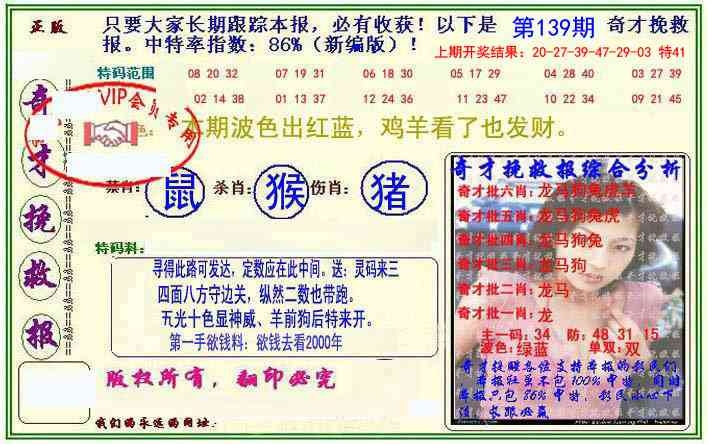 正版
只要大家长期跟踪本报，必有收获！以下是 第139期 奇才挽救
报。中特率指数：86%（新编版）！
上期开奖结果：20-27-39-47-29-03 特41
特码范围
08 20 32 07 19 31 06 18 30 05 17 29 04 28 40 09 27 33
02 14 38 01 13 37 12 24 36 11 23 47 10 22 34 03 21 45
VIP会员专用
本期波色出红蓝，鸡羊看了也发财。
奇才挽救报
禁肖：鼠 杀肖：猴 伤肖：猪
特码料：
寻得此路可发达，定数应在此中间。送：灵码来三
四面八方守边关，纵然二数也带跑。
五光十色显神威、羊前狗后特来开。
第一手欲钱料：欲钱去看2000年
版权所有，翻印必究
我们的永远的网址：
奇才挽救报综合分析
奇才批六肖：龙马狗兔虎羊
奇才批五肖：龙马狗兔虎
奇才批四肖：龙马狗兔
奇才批三肖：龙马狗
奇才批二肖：龙马
奇才批一肖：龙
主一码：34 防：48 31 15
波色：绿蓝 单双：双
奇才投顾各位支持本报的彩民们
本报虽不包100%中特，同时
本报只包86%中特，彩民小心下